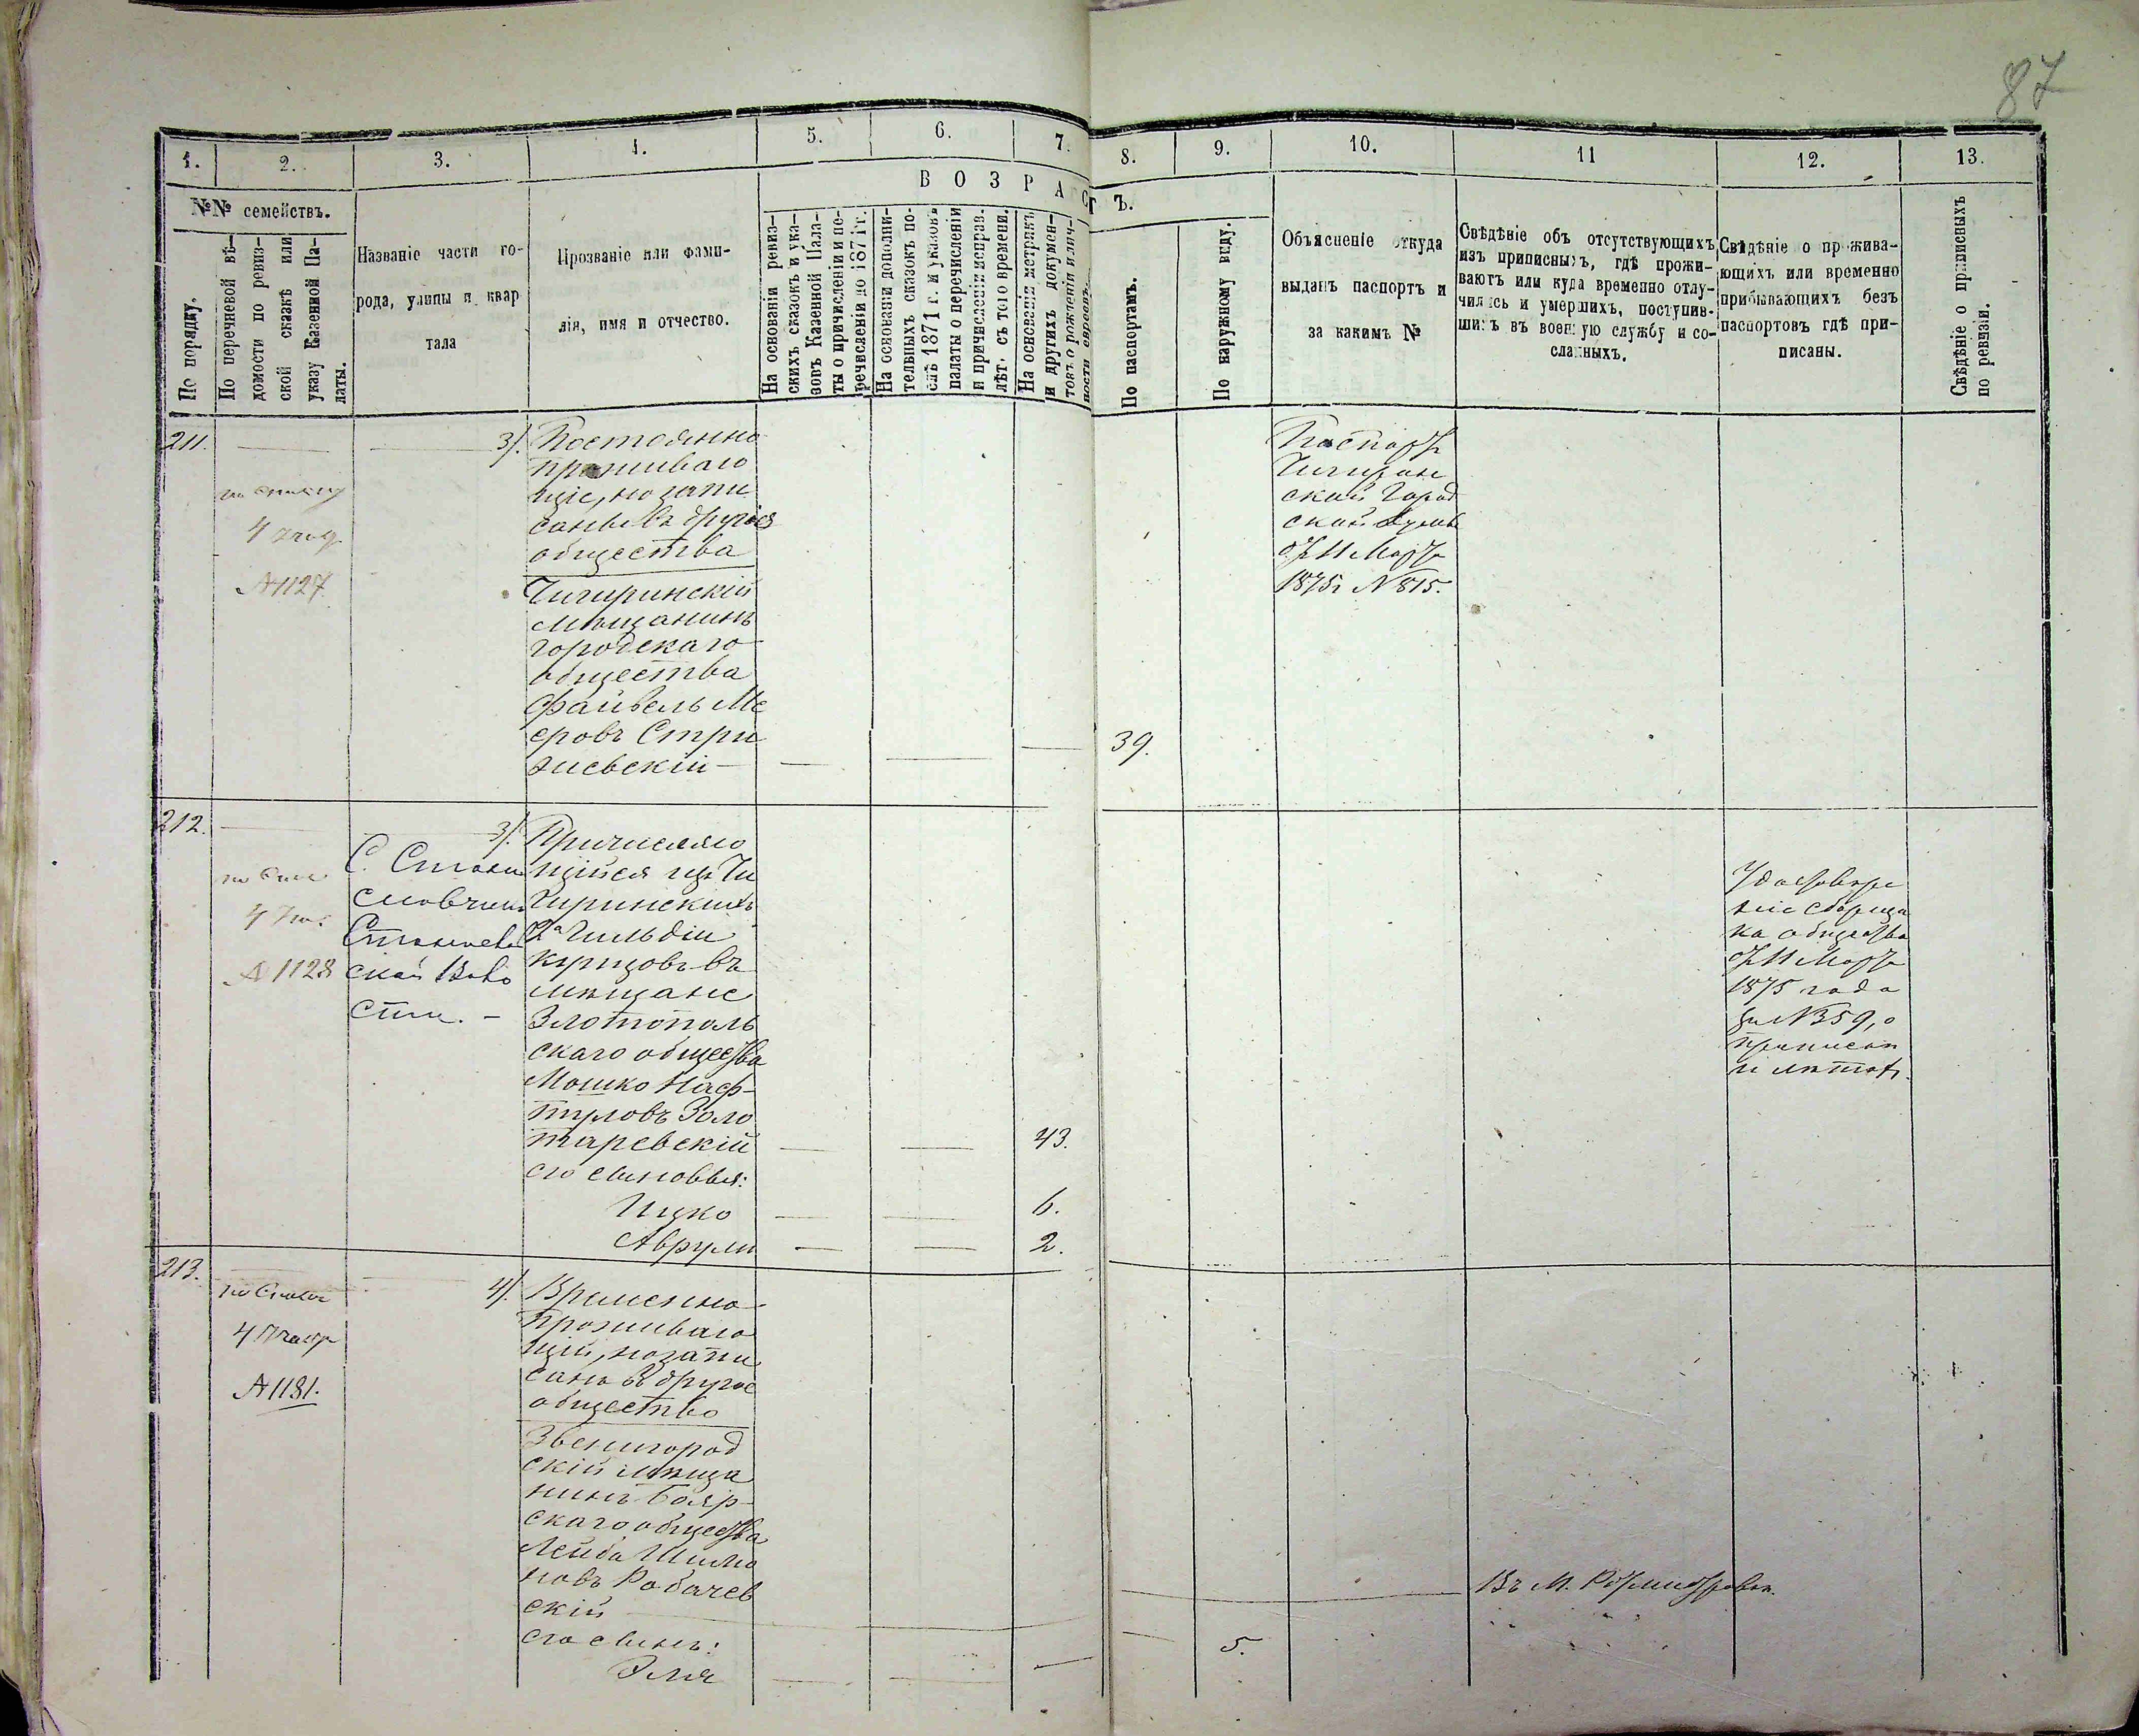 87
1.
2.
3.
4.
5.
6.
7.
8.
9.
10.
11
12.
13.
№№ семействъ.
По порядку.
По перечневой вѣ-
домости по ревиз-
ской сказкѣ или
указу Казенной Па-
латы.
Названіе части го-
рода, улицы и квар
тала
Прозваніе или фами-
лія, имя и отчество.
ВОЗРАСТЪ.
На основаніи ревиз-
скихъ сказокъ и ука-
зовъ Казенной Пала-
ты о причисленіи и пе-
речисленіи до 1871 гг.
На основаніи дополни-
тельныхъ сказокъ по-
слѣ 1871 г. и указовъ
палаты о перечисленіи
и причисленіи исправ.
лѣт. съ того времени.
На основаніи метрикъ
и другихъ докумен-
товъ о рожденіи и лич-
ности евреевъ.
По паспортамъ.
По наружному виду.
Объясненіе откуда
выданъ паспортъ и
за какимъ №
Свѣдѣніе объ отсутствующихъ
изъ приписныхъ, гдѣ прожи-
ваютъ или куда временно отлу-
чились и умершихъ, поступив-
шихъ въ военную службу и со-
сланныхъ.
Свѣдѣніе о прожива-
ющихъ или временно
прибывающихъ безъ
паспортовъ гдѣ при-
писаны.
Свѣдѣніе о приписныхъ
по ревизіи.
211.
по списку
4
№1127
3/. Постоянно
проживаю
щіе, но запи
саные въ другія
общества
Чигиринскій
мѣщанинъ
городскаго
общества
Файвель Ме
еровъ Стри
жевскій
39.
Паспортъ
Чигирин
ской Город
ской Думы
отъ 11 Марта
1875г №815.
212.
4
№1128
С. Стани
словчик
Станислав
ской Воло
сти. -
3/. Причисляю
щійся изъ Чи
гиринскихъ
2й Гильдіи
купцовъ въ
мѣщане
Златополь
скаго общества
Мошко Наф-
туловъ Золо
таревскій
43.
его сыновья:
Ицко
6.
Аврумъ
2.
Удостовѣре
ніе сборщи
ка общества
отъ 11 Марта
1875 года
за №359, о
приписк
и лѣтахъ.
213.
по Списку
4
№1181.
4/. Временно
проживаю
щій, но запи
санъ въ другое
общество
Звенигород
скій мѣща
нинъ Бояр-
скаго общества
Лейба Шимо
новъ Робачев
скій
Въ М.
его сынъ:
Эля
5.